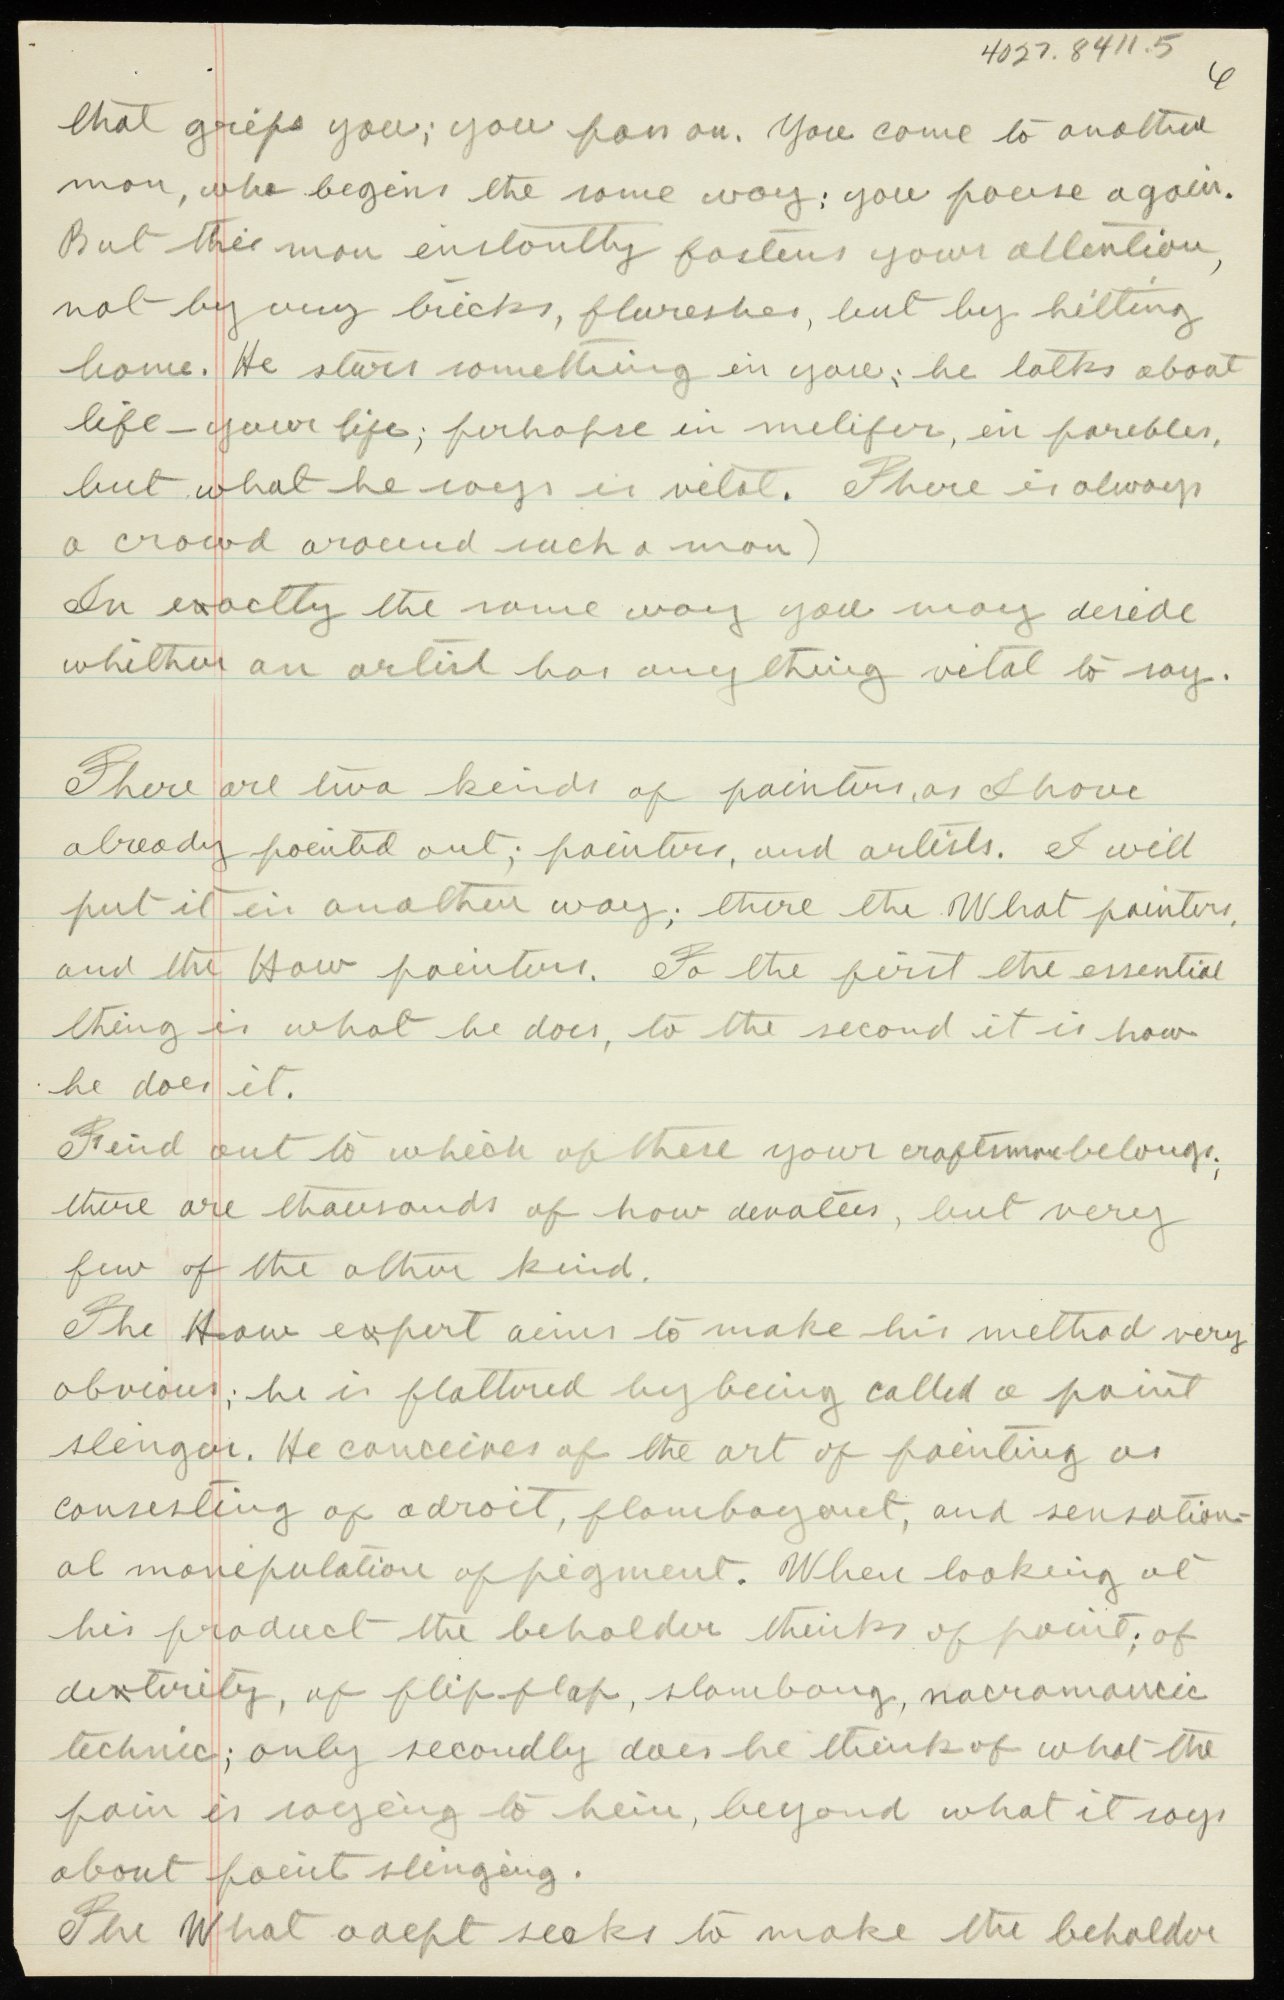 4027.8411.5
6
that grips you; you pass on. You come to another
man, who begins the same way; you pause again.
But this man instantly fastens your attention,
not by any tricks, flureshes, but by hitting
home. He stirs something in you; he talks about
life – your life; perhapse in melifer, in parebles,
but what he says is vital. There is always
a crowd around such a man)
In exactly the same way you may deside
whither an artist has anything vital to say.
There are two kinds of painters, as I have
already pointed out; painters, and artists. I will
put it in another way; there the What painters,
and the How painters. To the first the essential
thing is what he does, to the second it is how
he does it.
Find out to which of these your craftsman belongs;
there are thousands of how devotees, but very
few of the other kind.
The How expert aims to make his method very
obvious; he is flattered by being called a paint
slinger. He conceives of the art of painting as
consesting of adroit, flamboyant, and sensation-
al manipulation of pigment. When looking at
his product the beholder thinks of paint; of
dexterity, of flip-flap, slambang, nacromancic
technic; only secondly does he think of what the
pain is saying to him, beyond what it says
about paint slinging.
The What adept seeks to make the beholder